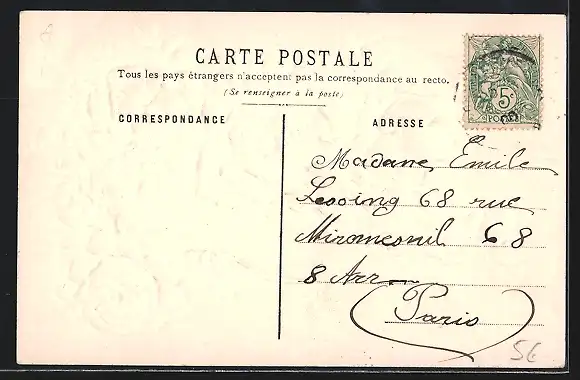 CARTE POSTALE
Tous les pays étrangers n'acceptent pas la correspondance au recto.
(Se renseigner à la poste)
CORRESPONDANCE
ADRESSE
5c
POSTES
Madame Emile
Lessing 68 rue
Miromesnil 68
8 Arr
(Paris)
56